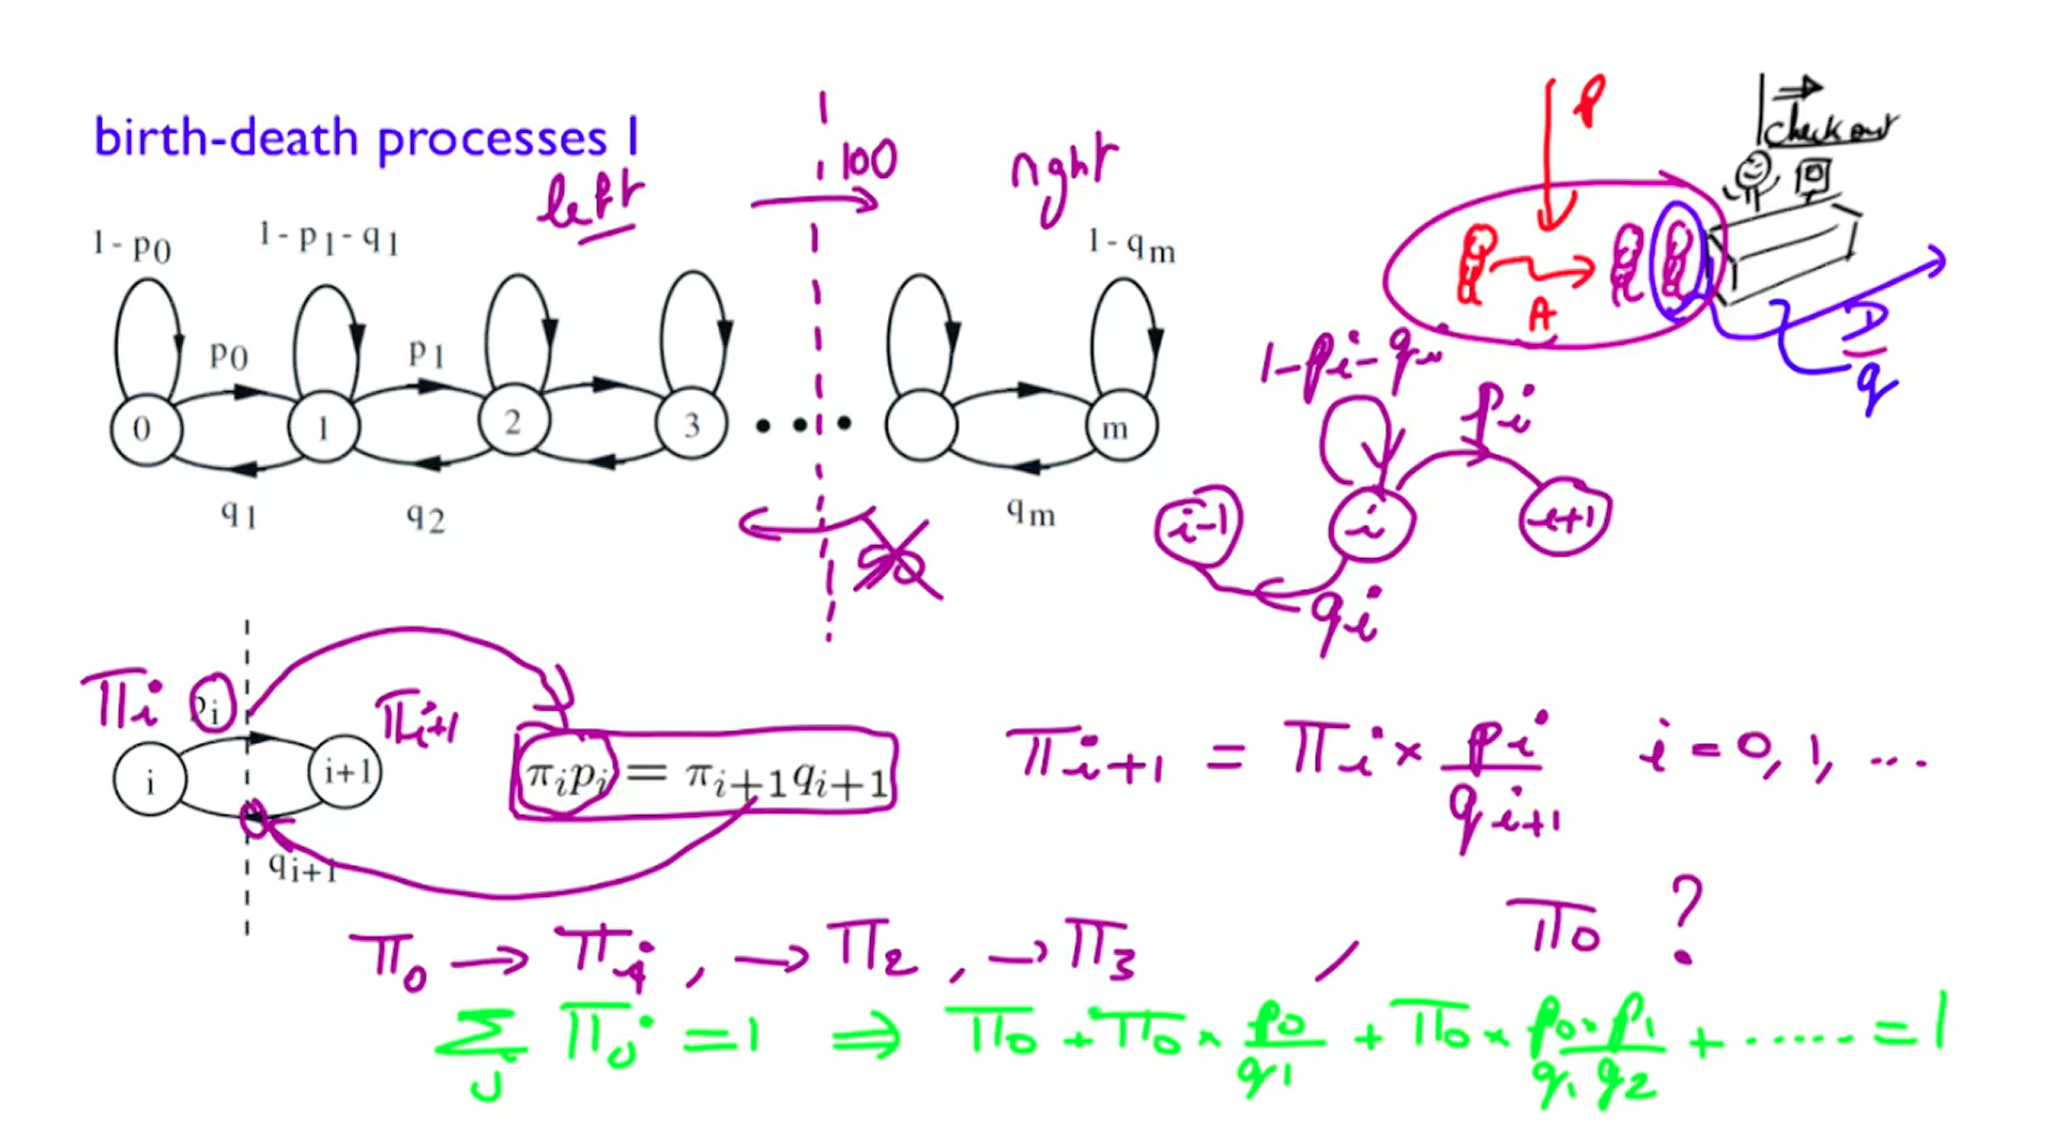 birth-death processes I
left
100
right
p
check out
A
D
q
1-p₀
1-p₁-q₁
1-qₘ
p₀
p₁
0
1
2
3
• • •
m
q₁
q₂
qₘ
1-pᵢ-qᵢ
pᵢ
i-1
i
i+1
qᵢ
πᵢ pᵢ
πᵢ₊₁
i
i+1
qᵢ₊₁
πᵢpᵢ = πᵢ₊₁qᵢ₊₁
πᵢ₊₁ = πᵢ × pᵢ/qᵢ₊₁ i = 0, 1, ...
π₀ → π₁, → π₂, → π₃ , π₀ ?
∑ⱼ πⱼ = 1 ⇒ π₀ + π₀ × p₀/q₁ + π₀ × p₀×p₁/q₁q₂ + ...... = 1